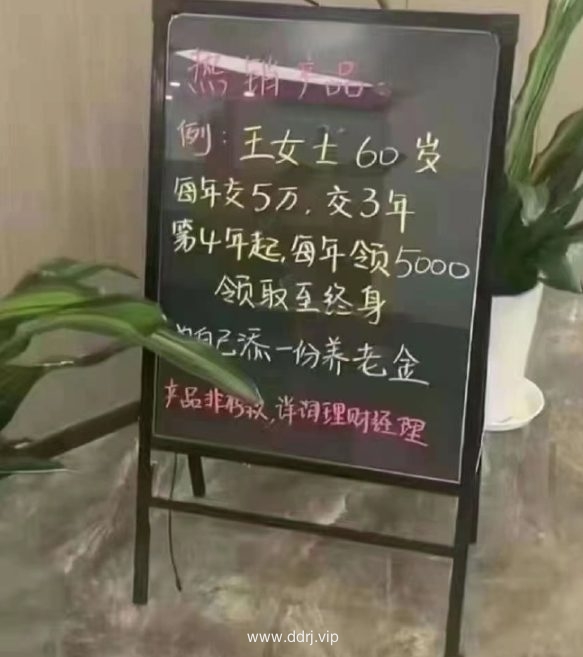 热销产品。
例：王女士 60 岁
每年交5万，交3年
第4年起，每年领5000
领取至终身
自己添一份养老金
产品非存款，详询理财经理
www.ddrj.vip